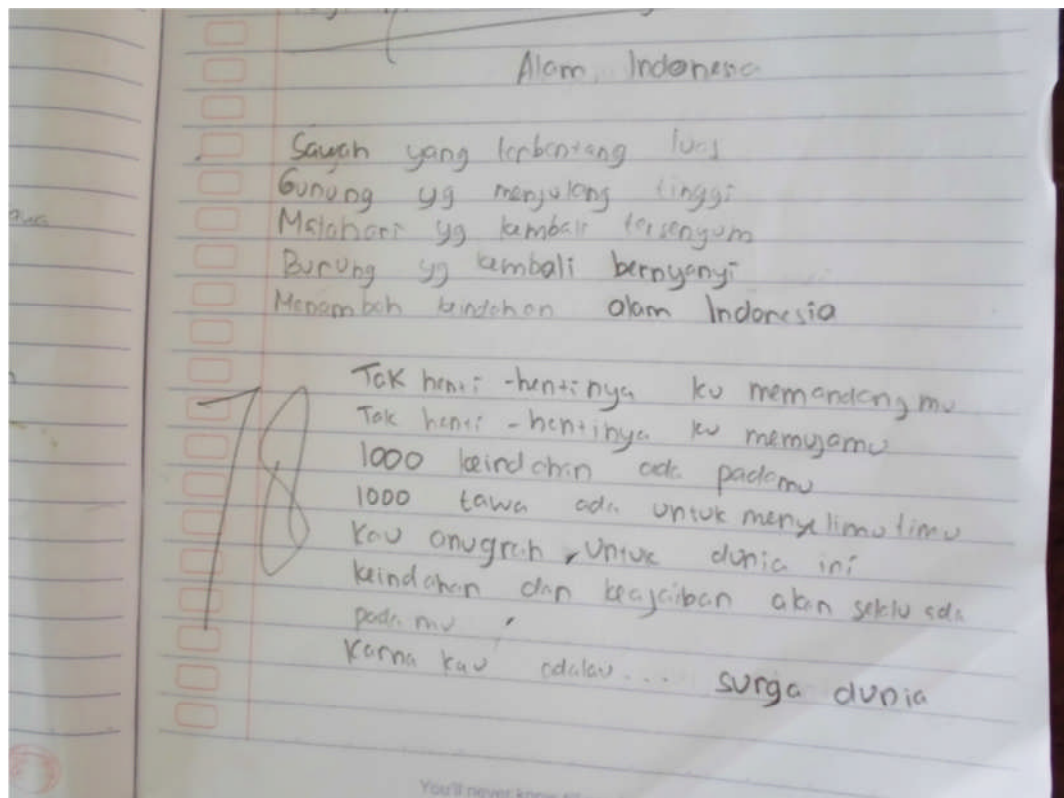 Alam Indonesia
Sawah yang terbentang luas
Gunung yg menjulang tinggi
Matahari yg kembali tersenyum
Burung yg kembali bernyanyi
Menambah keindahan alam Indonesia
Tak henti-hentinya ku memandang mu
Tak henti-hentinya ku memujamu
1000 keindahan ada padamu
1000 tawa ada untuk menyelimutimu
Kau anugrah, untuk dunia ini
keindahan dan keajaiban akan selalu ada
pada mu,
Karna kau adalau... surga dunia
78
You'll never know